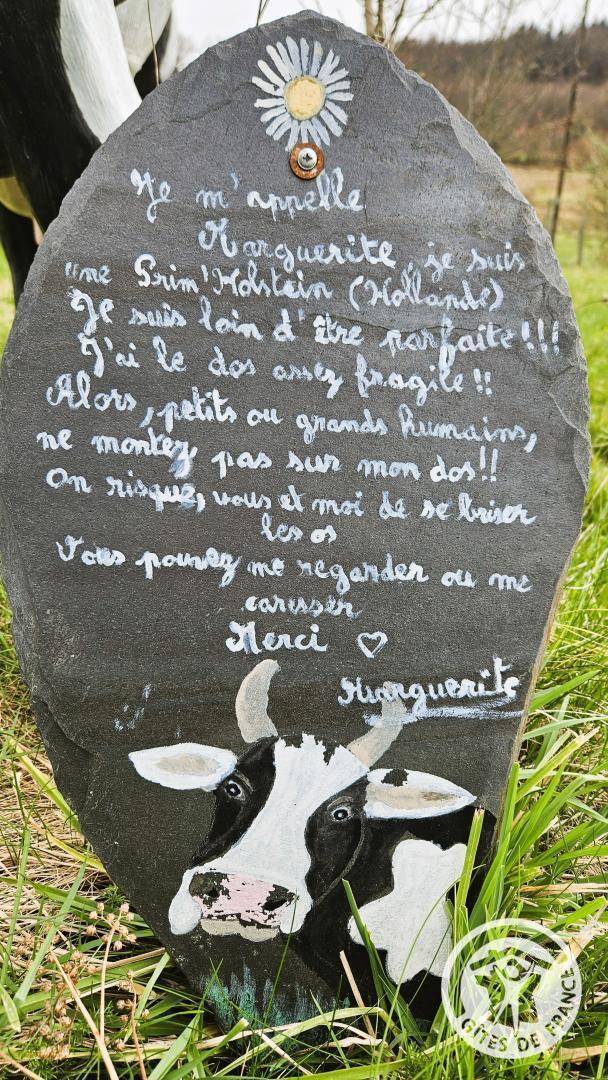 Je m'appelle
Marguerite, je suis
une Prim'Holstein (Hollande)
Je suis loin d'être parfaite !!!
J'ai le dos assez fragile !!
Alors, petits ou grands humains,
ne montez pas sur mon dos !!
On risque, vous et moi de se briser
les os
Vous pouvez me regarder ou me
caresser
Merci ♡
Marguerite
GÎTES DE FRANCE